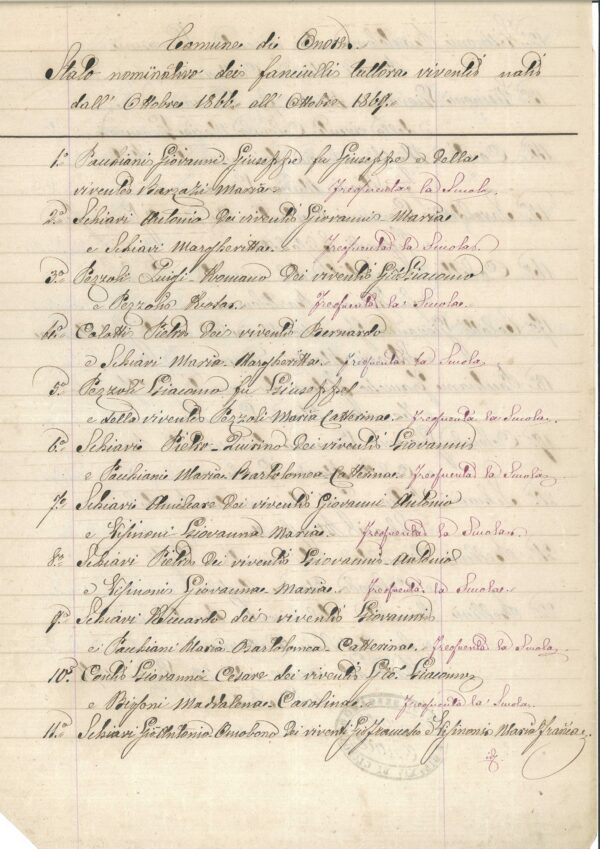 Comune di Onore.
Stato nominativo dei fanciulli tuttora viventi nati
dall' Ottobre 1866 all' Ottobre 1867.
1.° Pacchiani Giovanni Giuseppe fu Giuseppe e della
vivente Barzazi Maria. Frequenta la Scuola.
2.° Schiavi Antonio dei viventi Giovanni Maria
e Schiavi Margheritta. Frequenta la Scuola.
3.° Pezzoli Luigi Romano dei viventi Gio Giacomo
e Pezzoli Frequenta la Scuola.
4.° Colotti Pietro dei viventi Bernardo
e Schiavi Maria Margheritta. Frequenta la Scuola
5.° Pezzoli Giacomo fu Giuseppe
e della vivente Pezzoli Maria Catterina. Frequenta la Scuola.
6.° Schiavi Pietro Quirino dei viventi Giovanni
e Pacchiani Maria Bartolomea Catterina. Frequenta la Scuola.
7.° Schiavi Amilcare dei viventi Giovanni Antonio
e Visinoni Giovanna Maria. Frequenta la Scuola.
8.° Schiavi Pietro dei viventi Giovanni Antonio
e Visinoni Giovanna Maria. Frequenta la Scuola.
9.° Schiavi Riccardo dei viventi Giovanni
e Pacchiani Maria Bartolomea Catterina. Frequenta la Scuola
10.° Conti Giovanni Cesare dei viventi Gio. Giacomo
e Bigoni Maddalena Carolina. Frequenta la Scuola.
11.° Schiavi Gio Antonio Omobono dei viventi Gio Francesco e Visinoni Maria Franca.
id.